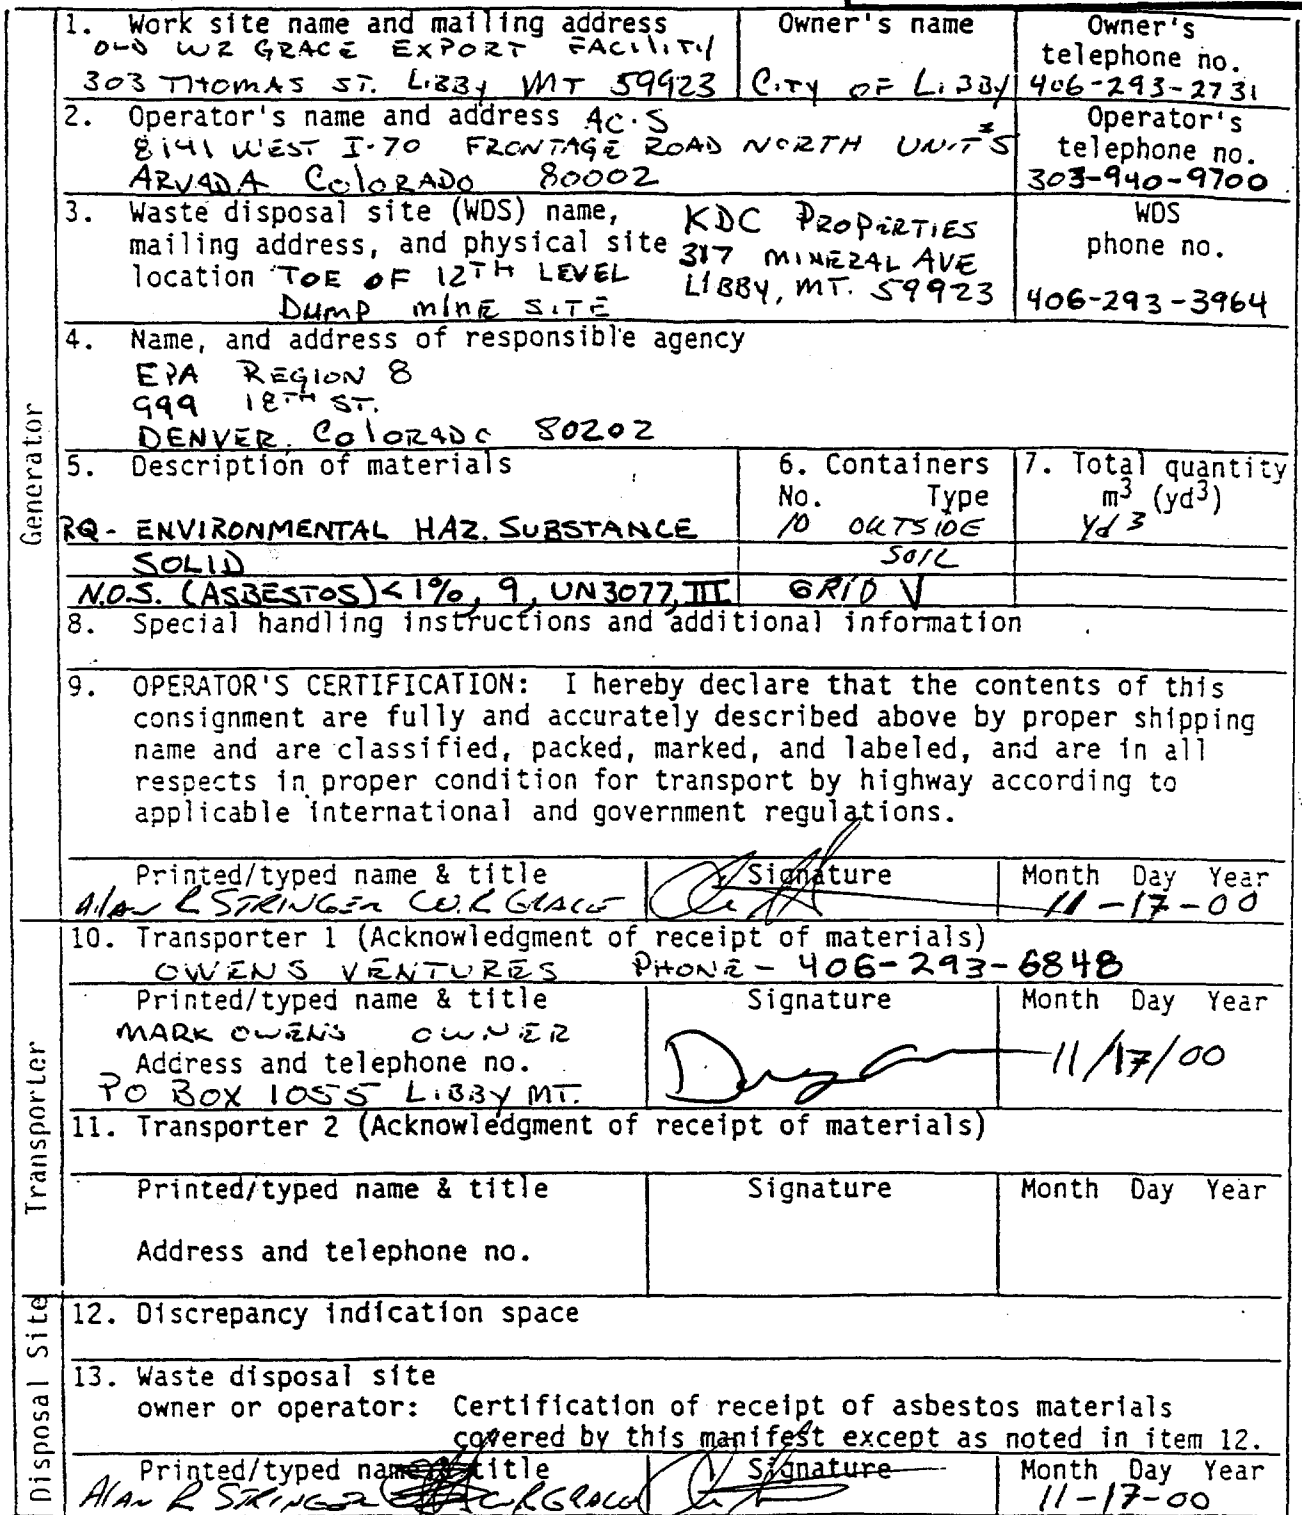 1. Work site name and mailing address
OLD WR GRACE EXPORT FACILITY
303 THOMAS ST. LIBBY MT 59923
Owner's name
CITY OF LIBBY
Owner's
telephone no.
406-293-2731
2. Operator's name and address AC·S
8141 WEST I-70 FRONTAGE ROAD NORTH UNIT #5
ARVADA COLORADO 80002
Operator's
telephone no.
303-940-9700
3. Waste disposal site (WDS) name,
mailing address, and physical site
location TOE OF 12TH LEVEL
DUMP MINE SITE
KDC PROPERTIES
317 MINERAL AVE
LIBBY, MT. 59923
WDS
phone no.
406-293-3964
4. Name, and address of responsible agency
EPA REGION 8
999 18TH ST.
DENVER, COLORADO 80202
5. Description of materials
6. Containers
No. Type
7. Total quantity
m3 (yd3)
RQ- ENVIRONMENTAL HAZ. SUBSTANCE
10 OUTSIDE
Yd 3
SOLID
SOIL
N.O.S. (ASBESTOS) < 1%, 9, UN3077, III
GRID V
8. Special handling instructions and additional information
9. OPERATOR'S CERTIFICATION: I hereby declare that the contents of this
consignment are fully and accurately described above by proper shipping
name and are classified, packed, marked, and labeled, and are in all
respects in proper condition for transport by highway according to
applicable international and government regulations.
Printed/typed name & title
Alan R STRINGER W.R GRACE
Signature
Month Day Year
11-17-00
10. Transporter 1 (Acknowledgment of receipt of materials)
OWENS VENTURES PHONE - 406-293-6848
Printed/typed name & title
MARK OWENS OWNER
Address and telephone no.
PO BOX 1055 LIBBY MT.
Signature
Month Day Year
11/17/00
11. Transporter 2 (Acknowledgment of receipt of materials)
Printed/typed name & title
Signature
Month Day Year
Address and telephone no.
12. Discrepancy indication space
13. Waste disposal site
owner or operator: Certification of receipt of asbestos materials
covered by this manifest except as noted in item 12.
Printed/typed name & title
Alan R STRINGER W R GRACE
Signature
Month Day Year
11-17-00
Generator
Transporter
Disposal Site